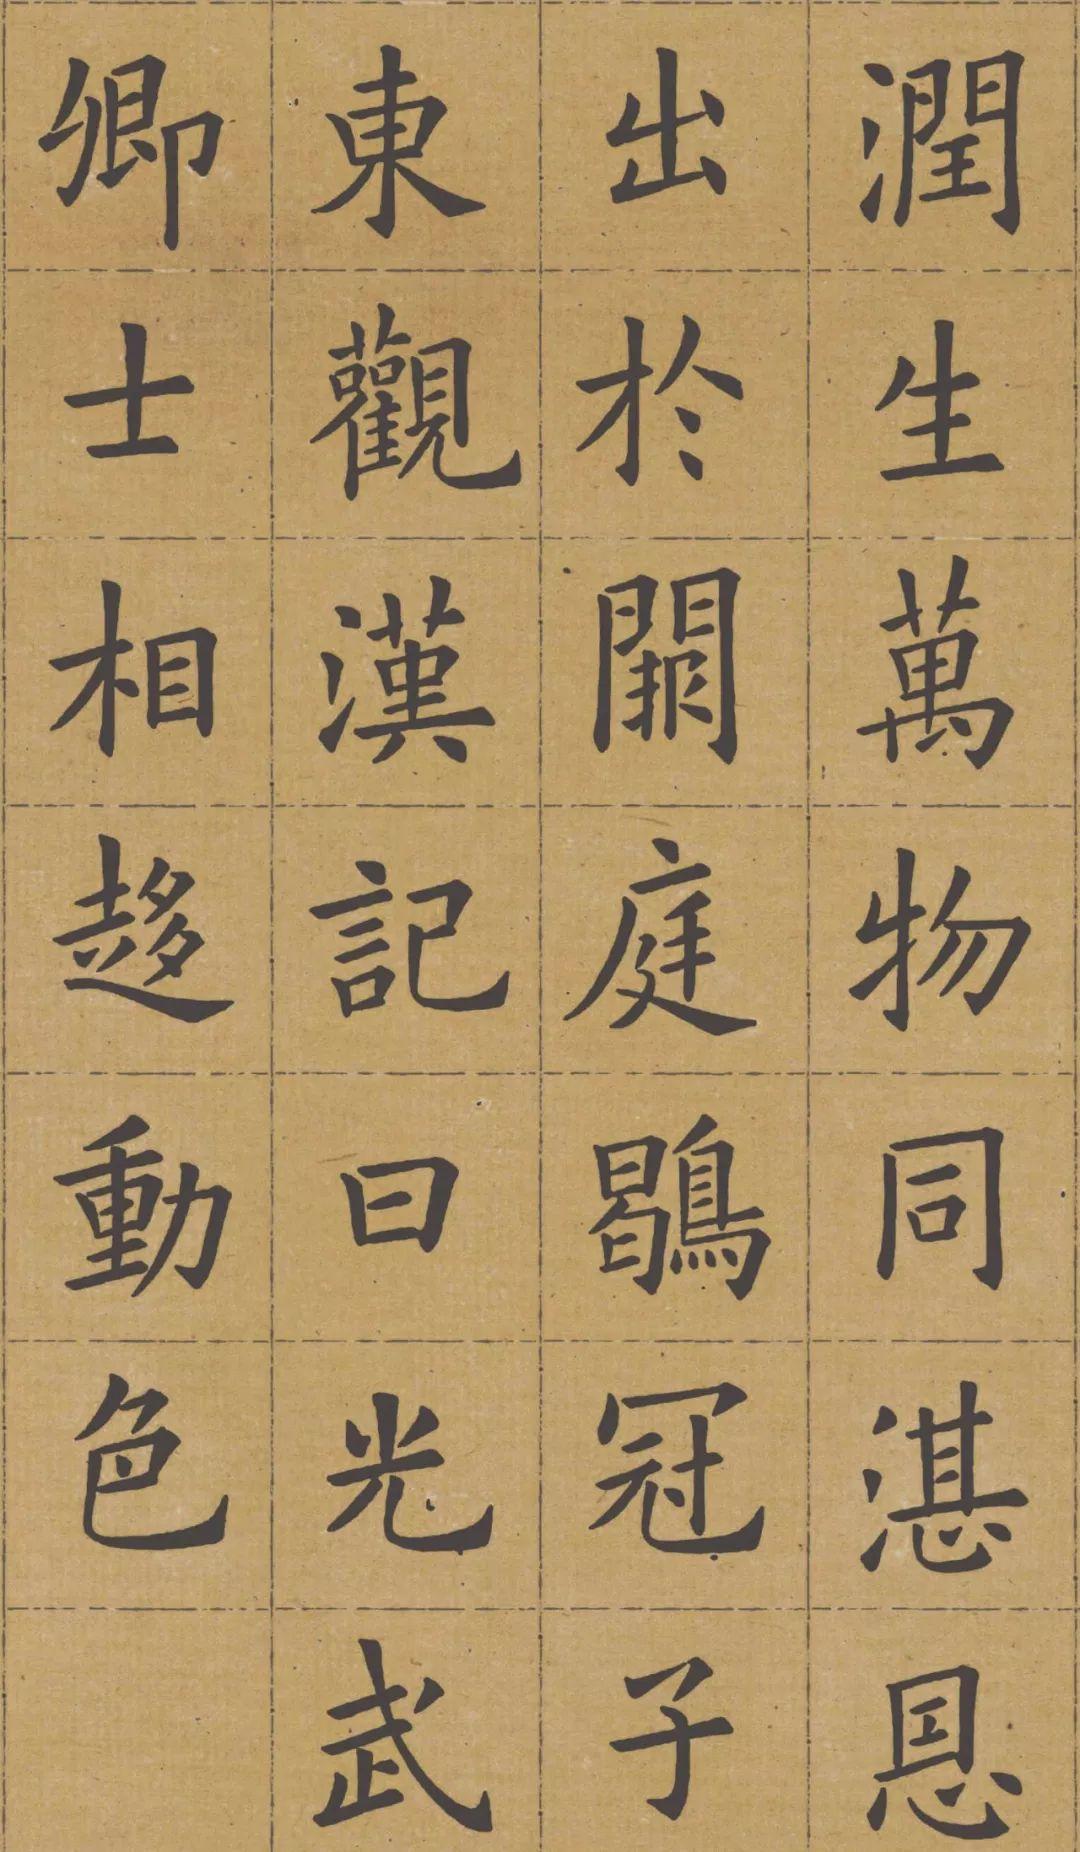 潤生萬物同湛恩
出於闕庭鶡冠子
東觀漢記曰光武
卿士相趍動色